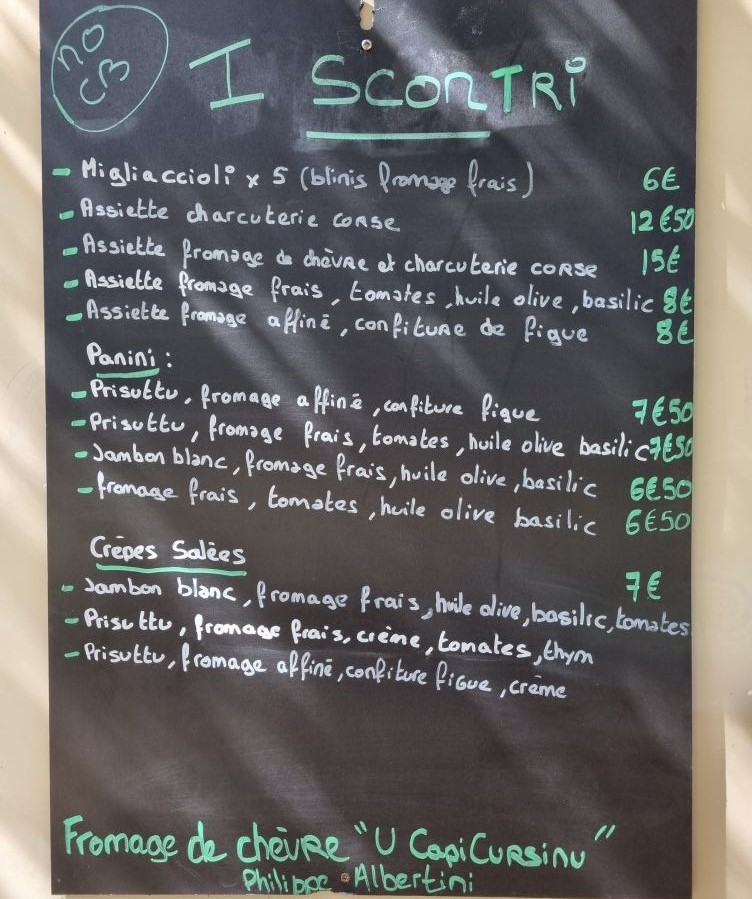 no
CB
I SCONTRI
- Migliaccioli x 5 (blinis fromage frais) 6€
- Assiette charcuterie corse 12€50
- Assiette fromage de chèvre et charcuterie corse 15€
- Assiette fromage frais, tomates, huile olive, basilic 8€
- Assiette fromage affiné, confiture de figue 8€
Panini :
- Prisuttu, fromage affiné, confiture figue 7€50
- Prisuttu, fromage frais, tomates, huile olive basilic 7€50
- Jambon blanc, fromage frais, huile olive, basilic 6€50
- fromage frais, tomates, huile olive basilic 6€50
Crêpes Salées 7€
- Jambon blanc, fromage frais, huile olive, basilic, tomates
- Prisuttu, fromage frais, crème, tomates, thym
- Prisuttu, fromage affiné, confiture figue, crème
Fromage de chèvre "U CapiCursinu"
Philippe Albertini